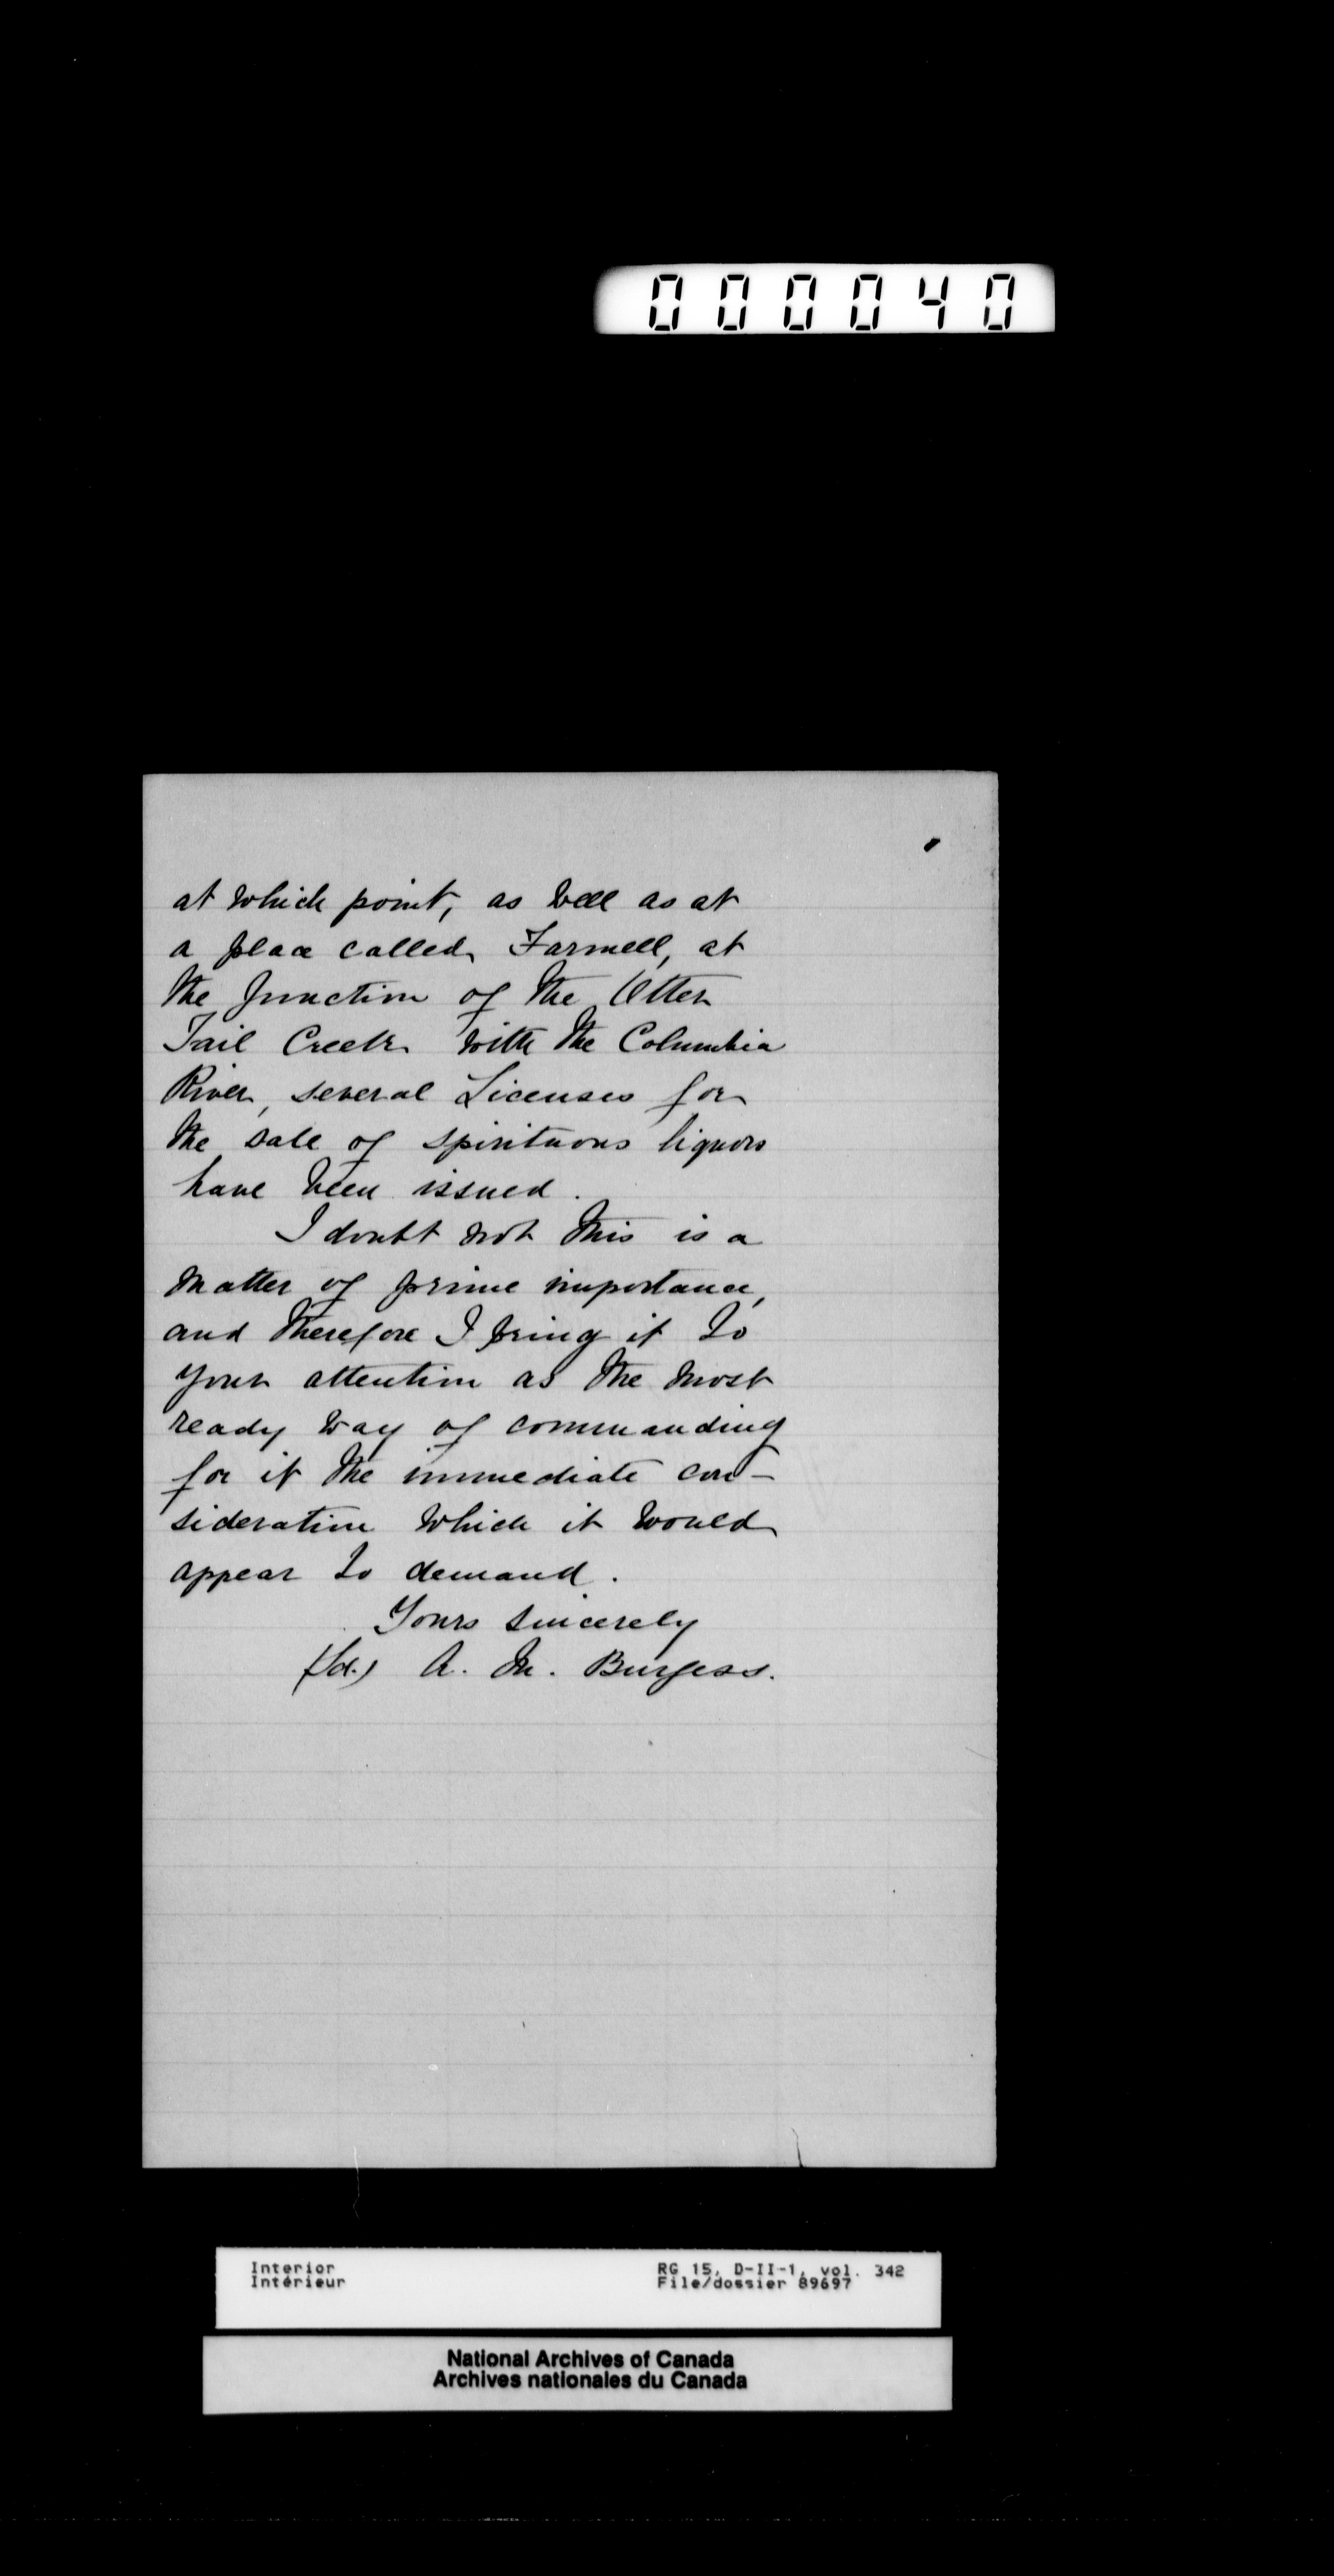 000040
at which point, as well as at
a place called Farwell, at
the junction of the Otter
Tail Creek with the Columbia
River, several Licenses for
the sale of spirituous liquors
have been issued.
I doubt not this is a
matter of prime importance,
and therefore I bring it to
your attention as the most
ready way of commanding
for it the immediate con-
sideration which it would
appear to demand.
Yours sincerely
(Sd.) A. M. Burgess.
Interior RG 15, D-II-1, vol. 342
Intérieur File/dossier 89697
National Archives of Canada
Archives nationales du Canada